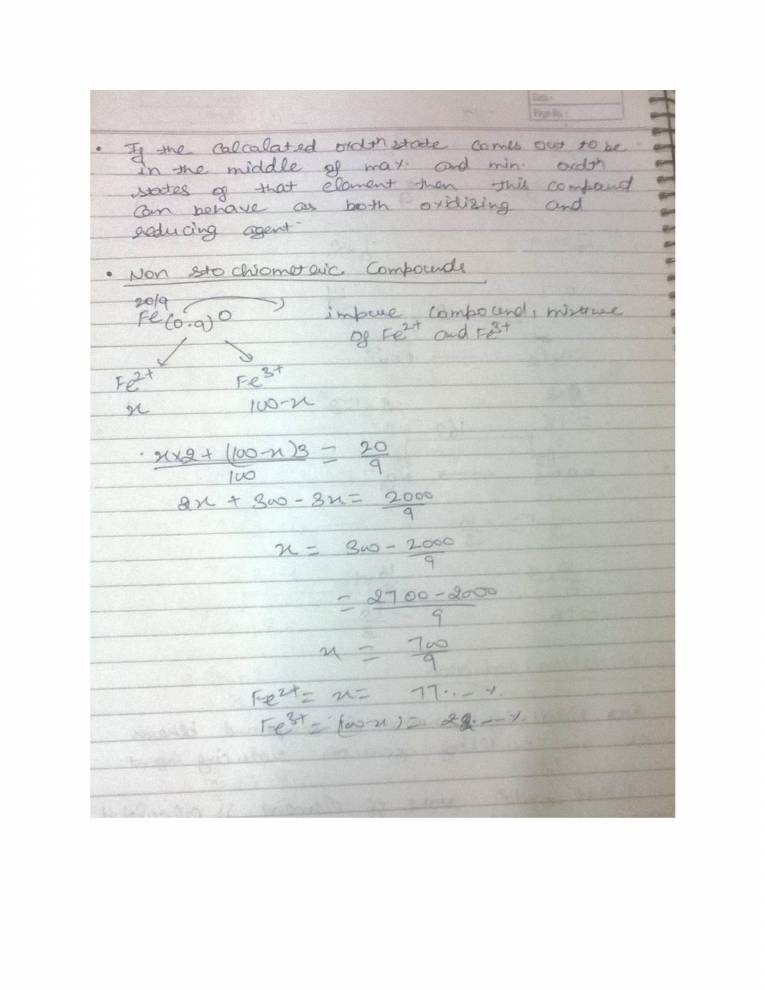 Date :
Page No. :
• If the calculated oxdtn state comes out to be
in the middle of max. and min. oxdtn
states of that element then this compound
can behave as both oxidizing and
reducing agent.
• Non stochiometric Compounds
20/9
Fe(0.9)O impure compound, mixture
of Fe²⁺ and Fe³⁺
Fe²⁺ Fe³⁺
x 100-x
x×2 + (100-x)3 = 20
100 9
2x + 300 - 3x = 2000
9
x = 300 - 2000
9
= 2700 - 2000
9
x = 700
9
Fe²⁺ = x = 77.--%
Fe³⁺ = (100-x) = 22.--%